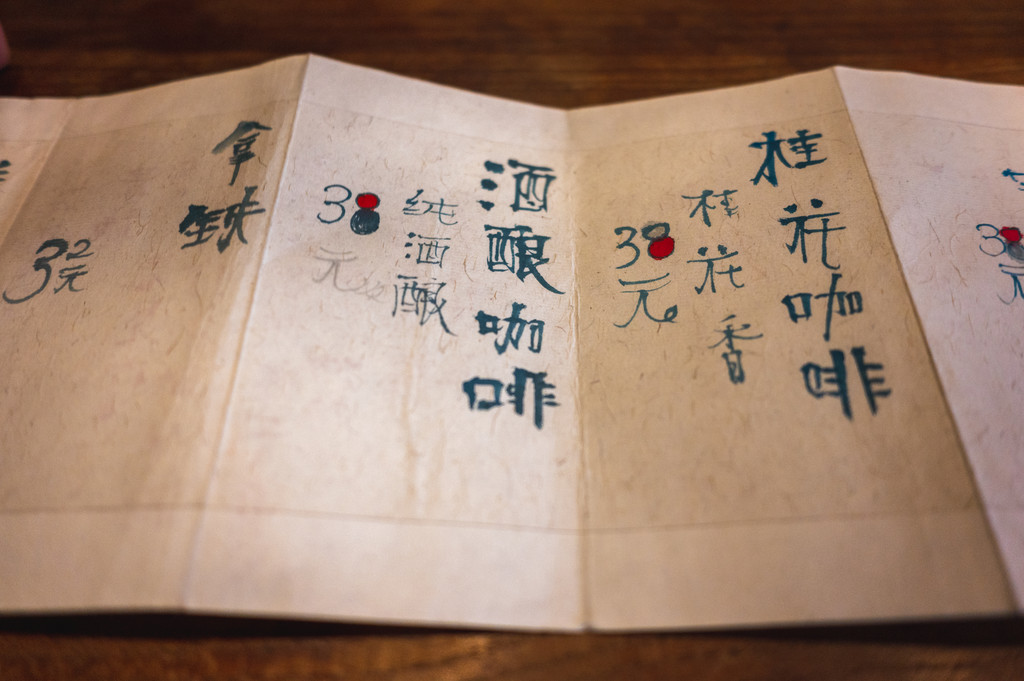 桂花咖啡
桂花香
38元
酒酿咖啡
纯酒酿
38元
拿铁
32元